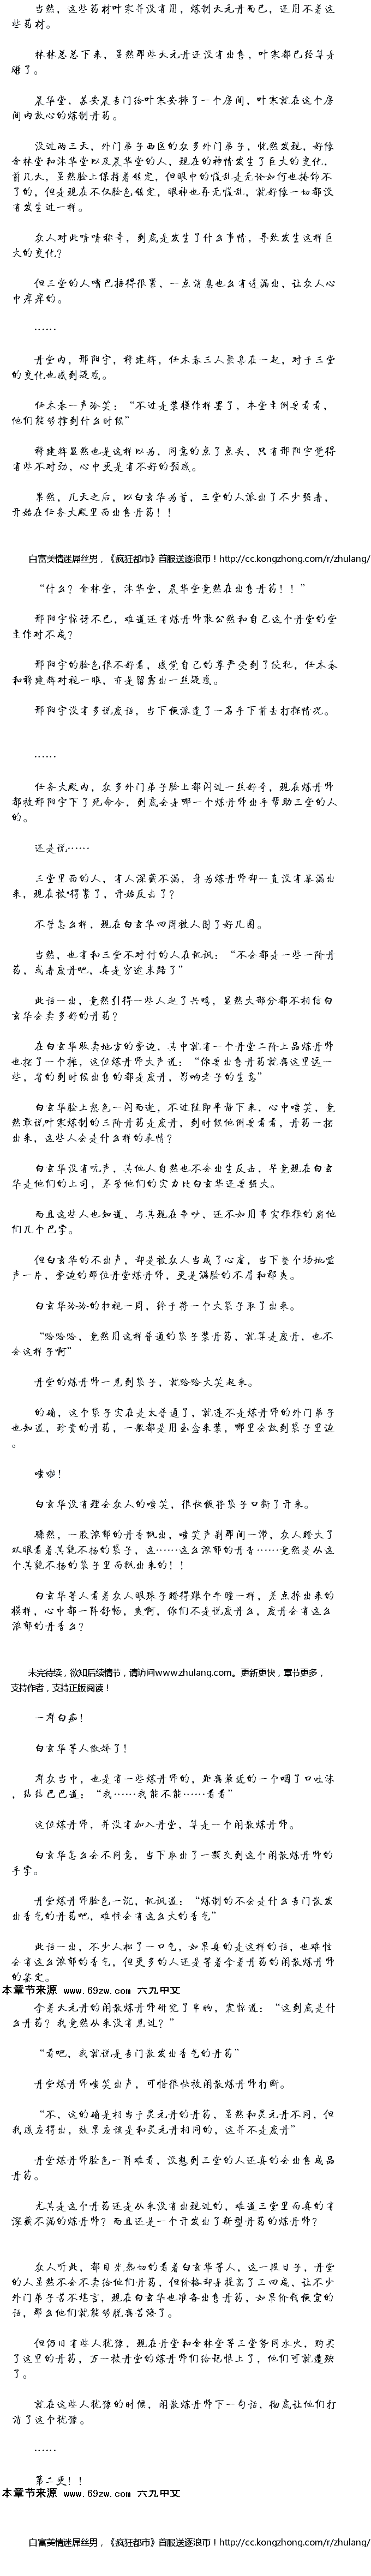 当然，这些药材叶寒并没有用，炼制大元丹而已，还用不着这
些药材。
林林总总下来，虽然那些大元丹还没有出售，叶寒都已经算是
赚了。
晨华堂，苏安晨专门给叶寒安排了一个房间，叶寒就在这个房
间内放心的炼制丹药。
没过两三天，外门弟子西区的众多外门弟子，恍然发现，好像
金林堂和沐华堂以及晨华堂的人，现在的神情发生了巨大的变化，
前几天，虽然脸上保持着镇定，但眼中的慌乱是无论如何也掩饰不
了的，但是现在不仅脸色镇定，眼神也再无慌乱，就好像一切都没
有发生过一样。
众人对此啧啧称奇，到底是发生了什么事情，导致发生这样巨
大的变化？
但三堂的人嘴巴捂得很紧，一点消息也么有透漏出，让众人心
中痒痒的。
……
丹堂内，邢阳宇，释建辉，任木春三人聚集在一起，对于三堂
的变化也感到疑惑。
任木春一声冷笑：“不过是装模作样罢了，本堂主倒要看看，
他们能够撑到什么时候”
释建辉显然也是这样以为，同意的点了点头，只有邢阳宇觉得
有些不对劲，心中更是有不好的预感。
果然，几天之后，以白玄华为首，三堂的人派出了不少强者，
开始在任务大殿里面出售丹药！！
白富美情迷屌丝男，《疯狂都市》首服送逐浪币！http://cc.kongzhong.com/r/zhulang/
“什么？金林堂，沐华堂，晨华堂竟然在出售丹药！！”
邢阳宇惊讶不已，难道还有炼丹师敢公然和自己这个丹堂的堂
主作对不成？
邢阳宇的脸色很不好看，感觉自己的尊严受到了侵犯，任木春
和释建辉对视一眼，亦是留露出一丝疑惑。
邢阳宇没有多说废话，当下便派遣了一名手下前去打探情况。
……
任务大殿内，众多外门弟子脸上都闪过一丝好奇，现在炼丹师
都被邢阳宇下了死命令，到底会是哪一个炼丹师出手帮助三堂的人
的。
还是说……
三堂里面的人，有人深藏不漏，身为炼丹师却一直没有暴漏出
来，现在被*得紧了，开始反击了？
不管怎么样，现在白玄华四周被人围了好几圈。
当然，也有和三堂不对付的人在讥讽：“不会都是一些一阶丹
药，或者废丹吧，真是穷途末路了”
此话一出，竟然引得一些人起了共鸣，显然大部分都不相信白
玄华会卖多好的丹药？
在白玄华贩卖地方的旁边，其中就有一个丹堂二阶上品炼丹师
也摆了一个摊，这位炼丹师大声道：“你要出售丹药就离这里远一
些，省的到时候出售的都是废丹，影响老子的生意”
白玄华脸上怒色一闪而逝，不过随即平静下来，心中嗤笑，竟
然敢说叶寒炼制的三阶丹药是废丹，到时候他倒要看看，丹药一摆
出来，这些人会是什么样的表情？
白玄华没有吭声，其他人自然也不会出生反击，毕竟现在白玄
华是他们的上司，尽管他们的实力比白玄华还要强大。
而且这些人也知道，与其现在争吵，还不如用事实狠狠的扇他
们几个巴掌。
但白玄华的不出声，却是被众人当成了心虚，当下整个场地嘘
声一片，旁边的那位丹堂炼丹师，更是满脸的不屑和鄙夷。
白玄华冷冷的扫视一周，终于将一个大袋子取了出来。
“哈哈哈，竟然用这样普通的袋子装丹药，就算是废丹，也不
会这样子啊”
丹堂的炼丹师一见到袋子，就哈哈大笑起来。
的确，这个袋子实在是太普通了，就连不是炼丹师的外门弟子
也知道，珍贵的丹药，一般都是用玉盒来装，哪里会放到袋子里边
。
嗤啦！
白玄华没有理会众人的嗤笑，很快便将袋子口撕了开来。
骤然，一股浓郁的丹香飘出，嗤笑声刹那间一滞，众人瞪大了
双眼看着其貌不扬的袋子，这……这么浓郁的丹香……竟然是从这
个其貌不扬的袋子里面飘出来的！！
白玄华等人看着众人眼珠子瞪得跟个牛瞳一样，差点掉出来的
模样，心中都一阵舒畅，爽啊，你们不是说废丹么，废丹会有这么
浓郁的丹香么？
未完待续，欲知后续情节，请访问www.zhulang.com。更新更快，章节更多，
支持作者，支持正版阅读！
一群白痴！
白玄华等人傲娇了！
群众当中，也是有一些炼丹师的，距离最近的一个咽了口吐沫
，结结巴巴道：“我……我能不能……看看”
这位炼丹师，并没有加入丹堂，算是一个闲散炼丹师。
白玄华怎么会不同意，当下取出了一颗交到这个闲散炼丹师的
手掌。
丹堂炼丹师脸色一沉，讥讽道：“炼制的不会是什么专门散发
出香气的丹药吧，难怪会有这么大的香气”
此话一出，不少人松了一口气，如果真的是这样的话，也难怪
会有这么浓郁的香气，但更多的人还是等着拿着丹药的闲散炼丹师
的鉴定。
本章节来源 www.69zw.com 六九中文
拿着大元丹的闲散炼丹师研究了半晌，震惊道：“这到底是什
么丹药？我竟然从来没有见过？”
“看吧，我就说是专门散发出香气的丹药”
丹堂炼丹师嗤笑出声，可惜很快被闲散炼丹师打断。
“不，这的确是相当于灵元丹的丹药，虽然和灵元丹不同，但
我感应得出，效果应该是和灵元丹相同的，这并不是废丹”
丹堂炼丹师脸色一阵难看，没想到三堂的人还真的会出售成品
丹药。
尤其是这个丹药还是从来没有出现过的，难道三堂里面真的有
深藏不漏的炼丹师？而且还是一个开发出了新型丹药的炼丹师？
众人听此，都目光热切的看着白玄华等人，这一段日子，丹堂
的人虽然不会不卖给他们丹药，但价格却是提高了三四成，让不少
外门弟子苦不堪言，现在白玄华也准备出售丹药，如果价钱便宜的
话，那么他们就能够脱离苦海了。
但仍旧有些人犹豫，现在丹堂和金林堂等三堂势同水火，购买
了这里的丹药，万一被丹堂的炼丹师们给记恨上了，他们可就遭殃
了。
就在这些人犹豫的时候，闲散炼丹师下一句话，彻底让他们打
消了这个犹豫。
……
第二更！！
本章节来源 www.69zw.com 六九中文
白富美情迷屌丝男，《疯狂都市》首服送逐浪币！http://cc.kongzhong.com/r/zhulang/